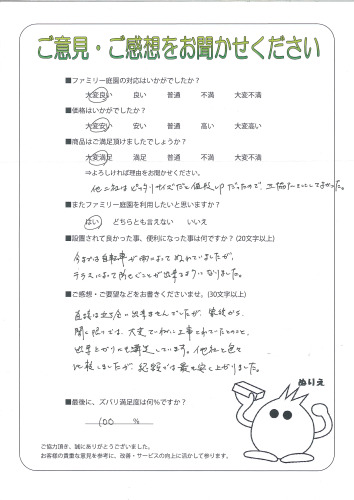 ご意見・ご感想をお聞かせください
■ファミリー庭園の対応はいかがでしたか？
大変良い 良い 普通 不満 大変不満
■価格はいかがでしたか？
大変安い 安い 普通 高い 大変高い
■商品はご満足頂けましたでしょうか？
大変満足 満足 普通 不満 大変不満
⇒よろしければ理由をお聞かせください。
他二社はピッタリサイズだと値段UPだったので、
■またファミリー庭園を利用したいと思いますか？
はい どちらとも言えない いいえ
■設置されて良かった事、便利になった事は何ですか？(20文字以上)
今までは自転車が雨によってぬれていましたが、
テラスによって防ぐことが出来るようになりました。
■ご感想・ご要望などをお書きくださいませ。(30文字以上)
直接は立ち会い出来ませんでしたが、家族から
聞く限りでは、大変ていねいに工事されていたとのこと、
出来上がりにも満足しています。他社と色々
比較しましたが、総額では最も安く上がりました。
ぬりえ
■最後に、ズバリ満足度は何%ですか？
100 %
ご協力頂き、誠にありがとうございました。
お客様の貴重な意見を参考に、改善・サービスの向上に活かして参ります。